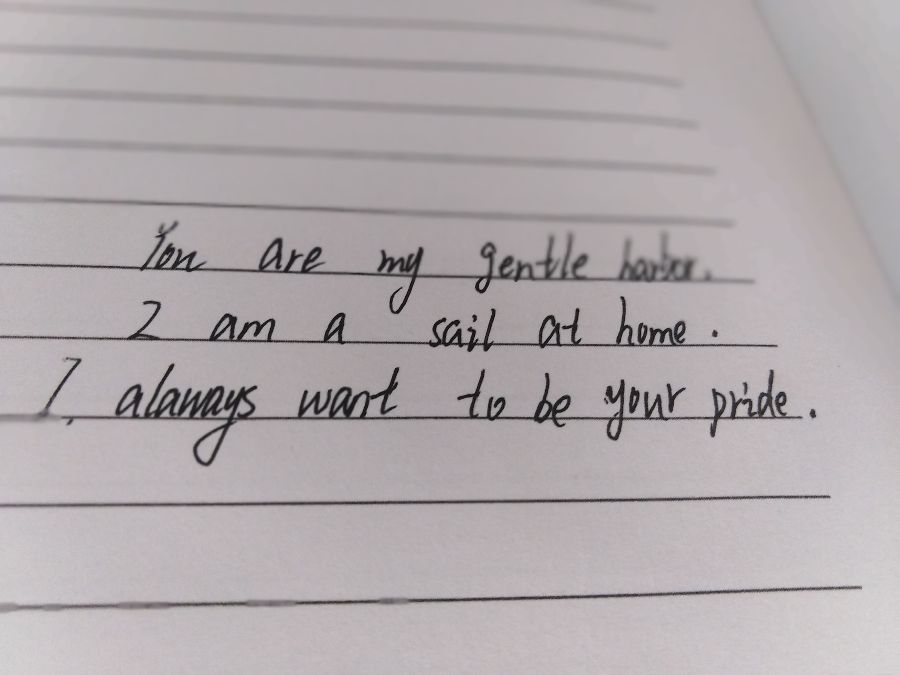 You are my gentle harbor.
I am a sail at home.
I alaways want to be your pride.